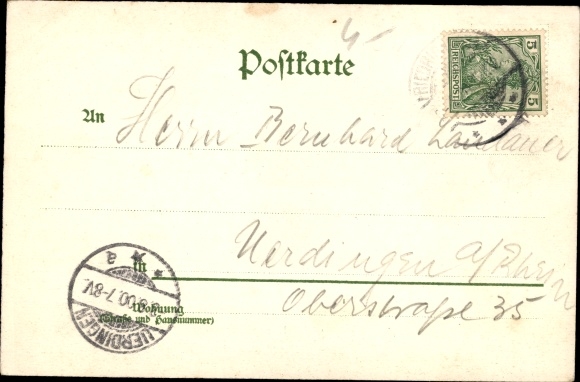 4-
Postkarte
REICHSPOST
5 5
An Herrn Bernhard Landauer
in Uerdingen a/Rhein
Wohnung Oberstraße 35
(Straße und Hausnummer)
UERDINGEN
00.7-8V.
* * a